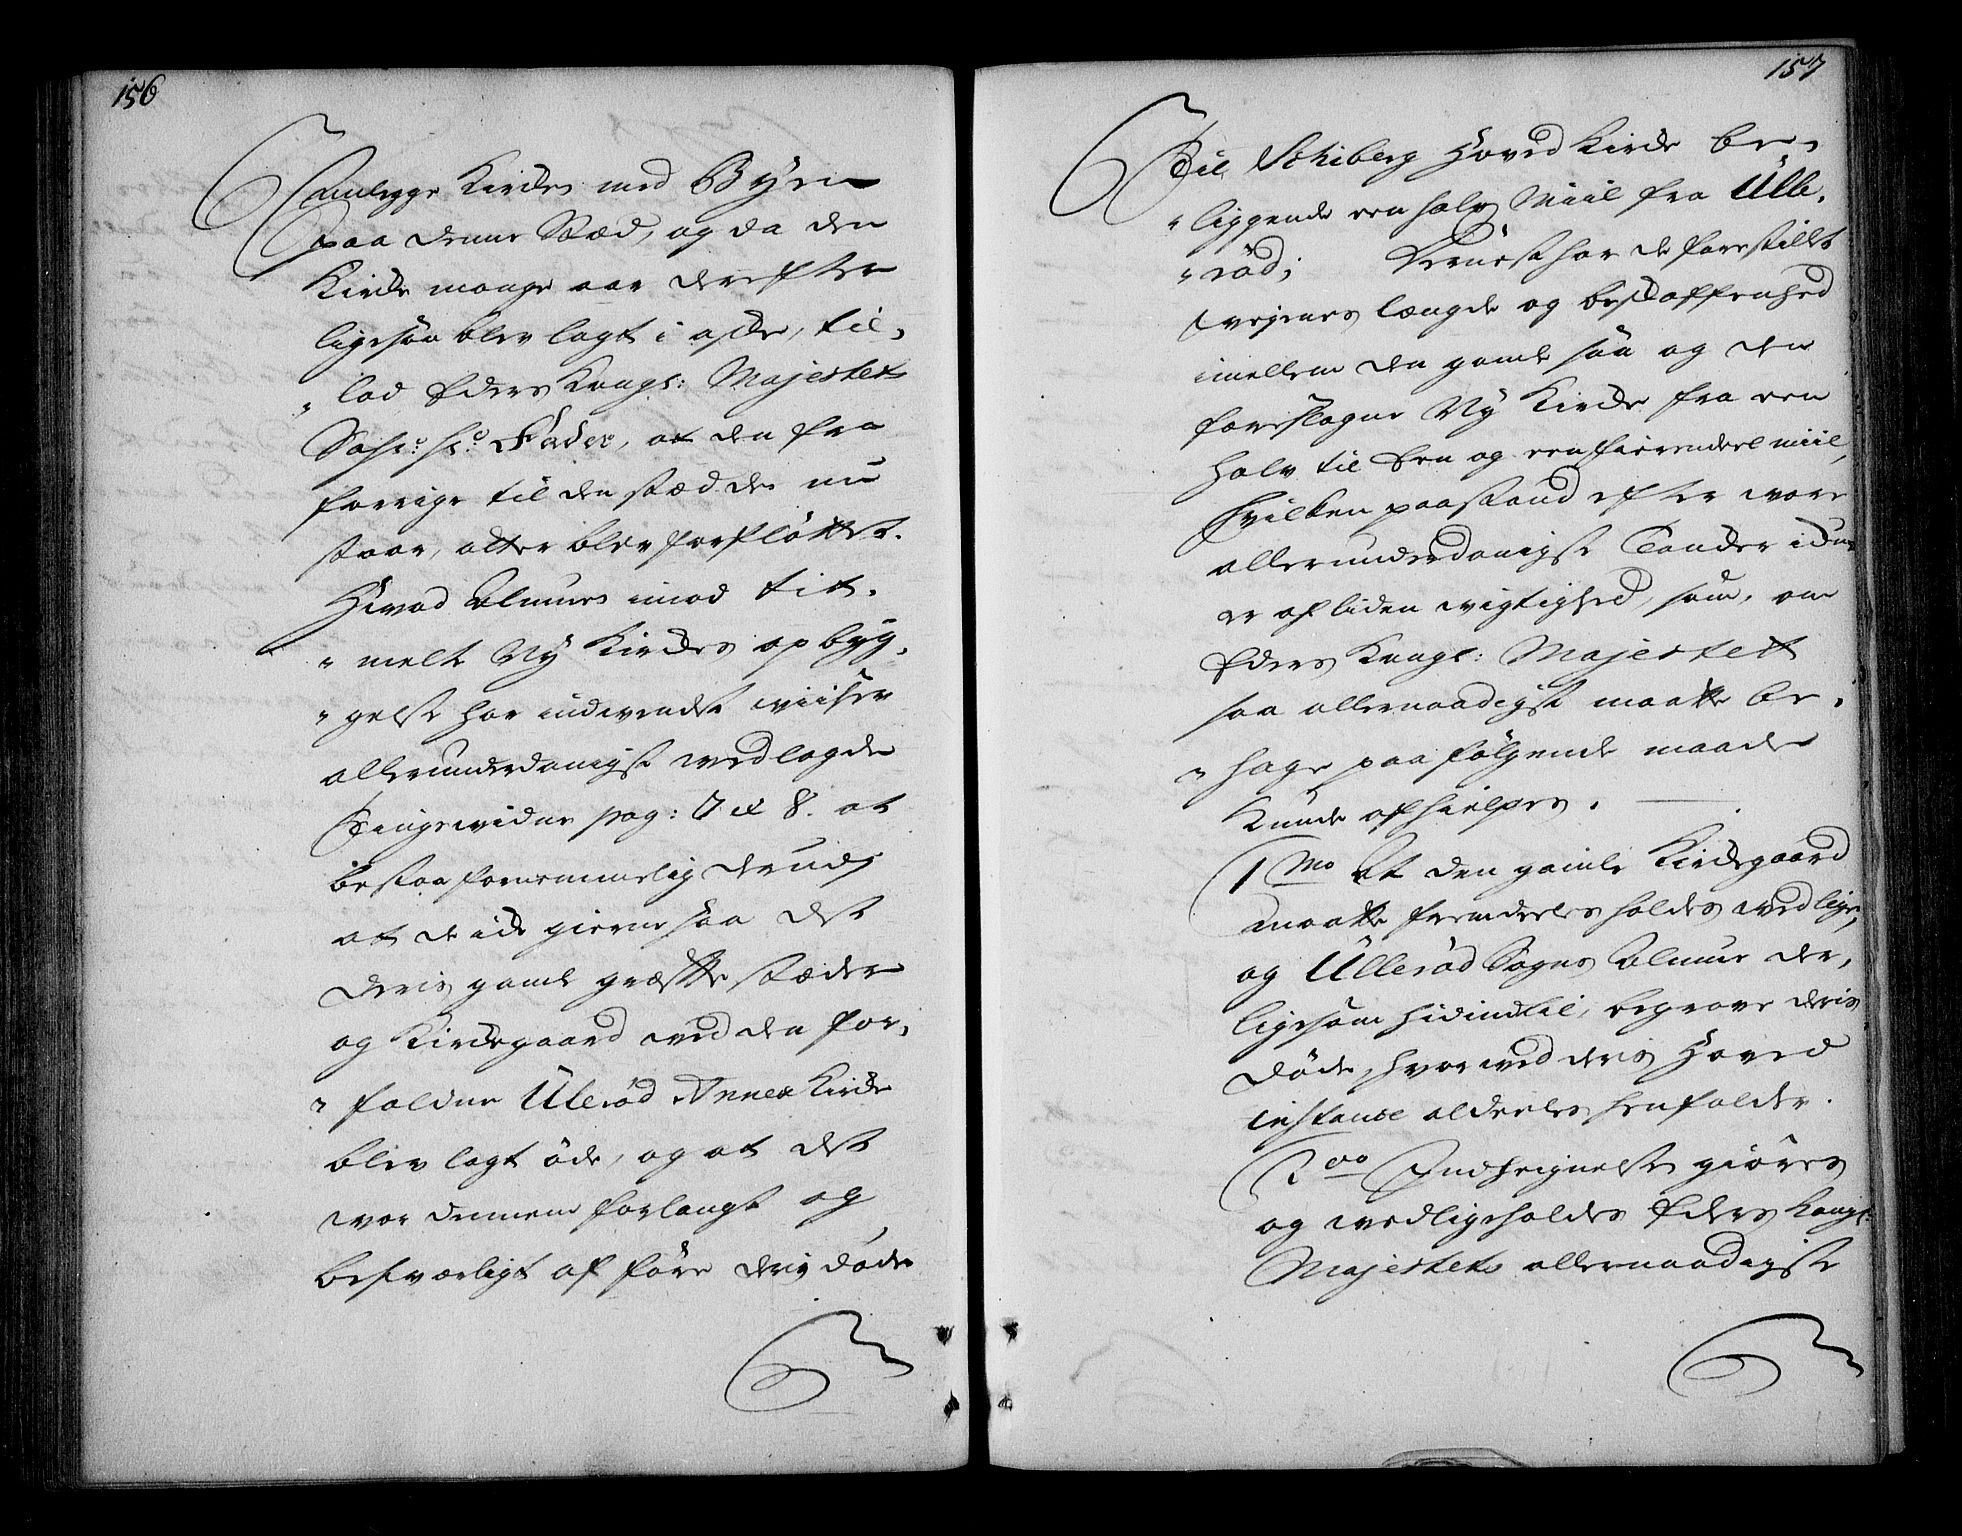 156
Anlegge Kirches med Byen
paa denne Stæd, og da den
Kirche mange aar derefter
ligesaa blev lagt i aske, til-
„ lod Eders Kongl: Majestets
Sahl: Hr: Fader, at den fra
forrige til den stæd de nu
staar, atter blev forfløttet.
Hvad Almues imod tit-
„ melte Ny Kirches opbyg-
„ gelse har indvendt viiser
allerunderdanigst vedlagde
Tingsvidne pag: 7 et 8. at
bestaa fornemmelig derudj
at de iche gierne saa det
deris gamle græske stæder
og Kirchegaard ved den for-
„ faldne Ulleröd Annex Kirche
blev lagt öde, og at det
var dennem forlangt og
besværligt at före deris döde
157
Til Schiberg Hoved Kirche be-
„ liggende een halv Miil fra Ulle-
„ röd; Dernest har de forestillet
veyenes længde og beskaffenhed
imellem den gamle saa og den
foreslagne Ny Kirche fra een
halv til Een og een fierendeel miil,
hvilken paastand efter vore
allerunderdanigste Tancker iche
er af liden vigtighed, som, om
Eders Kongl: Majestet
saa allernaadigst maatte be-
„ hage paa fölgende maade
kunde afhielpes.
1mo At den gamle Kirchegaard
maatte fremdeeles holdes vedlige,
og Ulleröd Sogns Almue der,
ligesom hidindtil, begrave deris
Döde, hvorved deris Hoved
instance aldeeles henfalder.
2do Indheignelse giöres
og vedligeholdes Eders Kongl:
Majestets allernaadigste